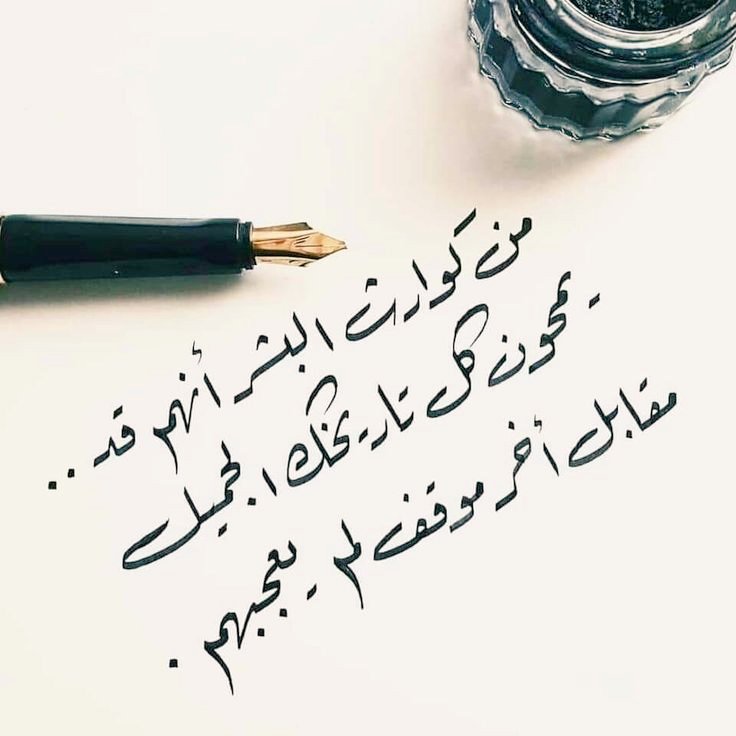 من كوارث البشر أنهم قد ..
يمحون كل تاريخك الجميل
مقابل أخر موقف لم يعجبهم .